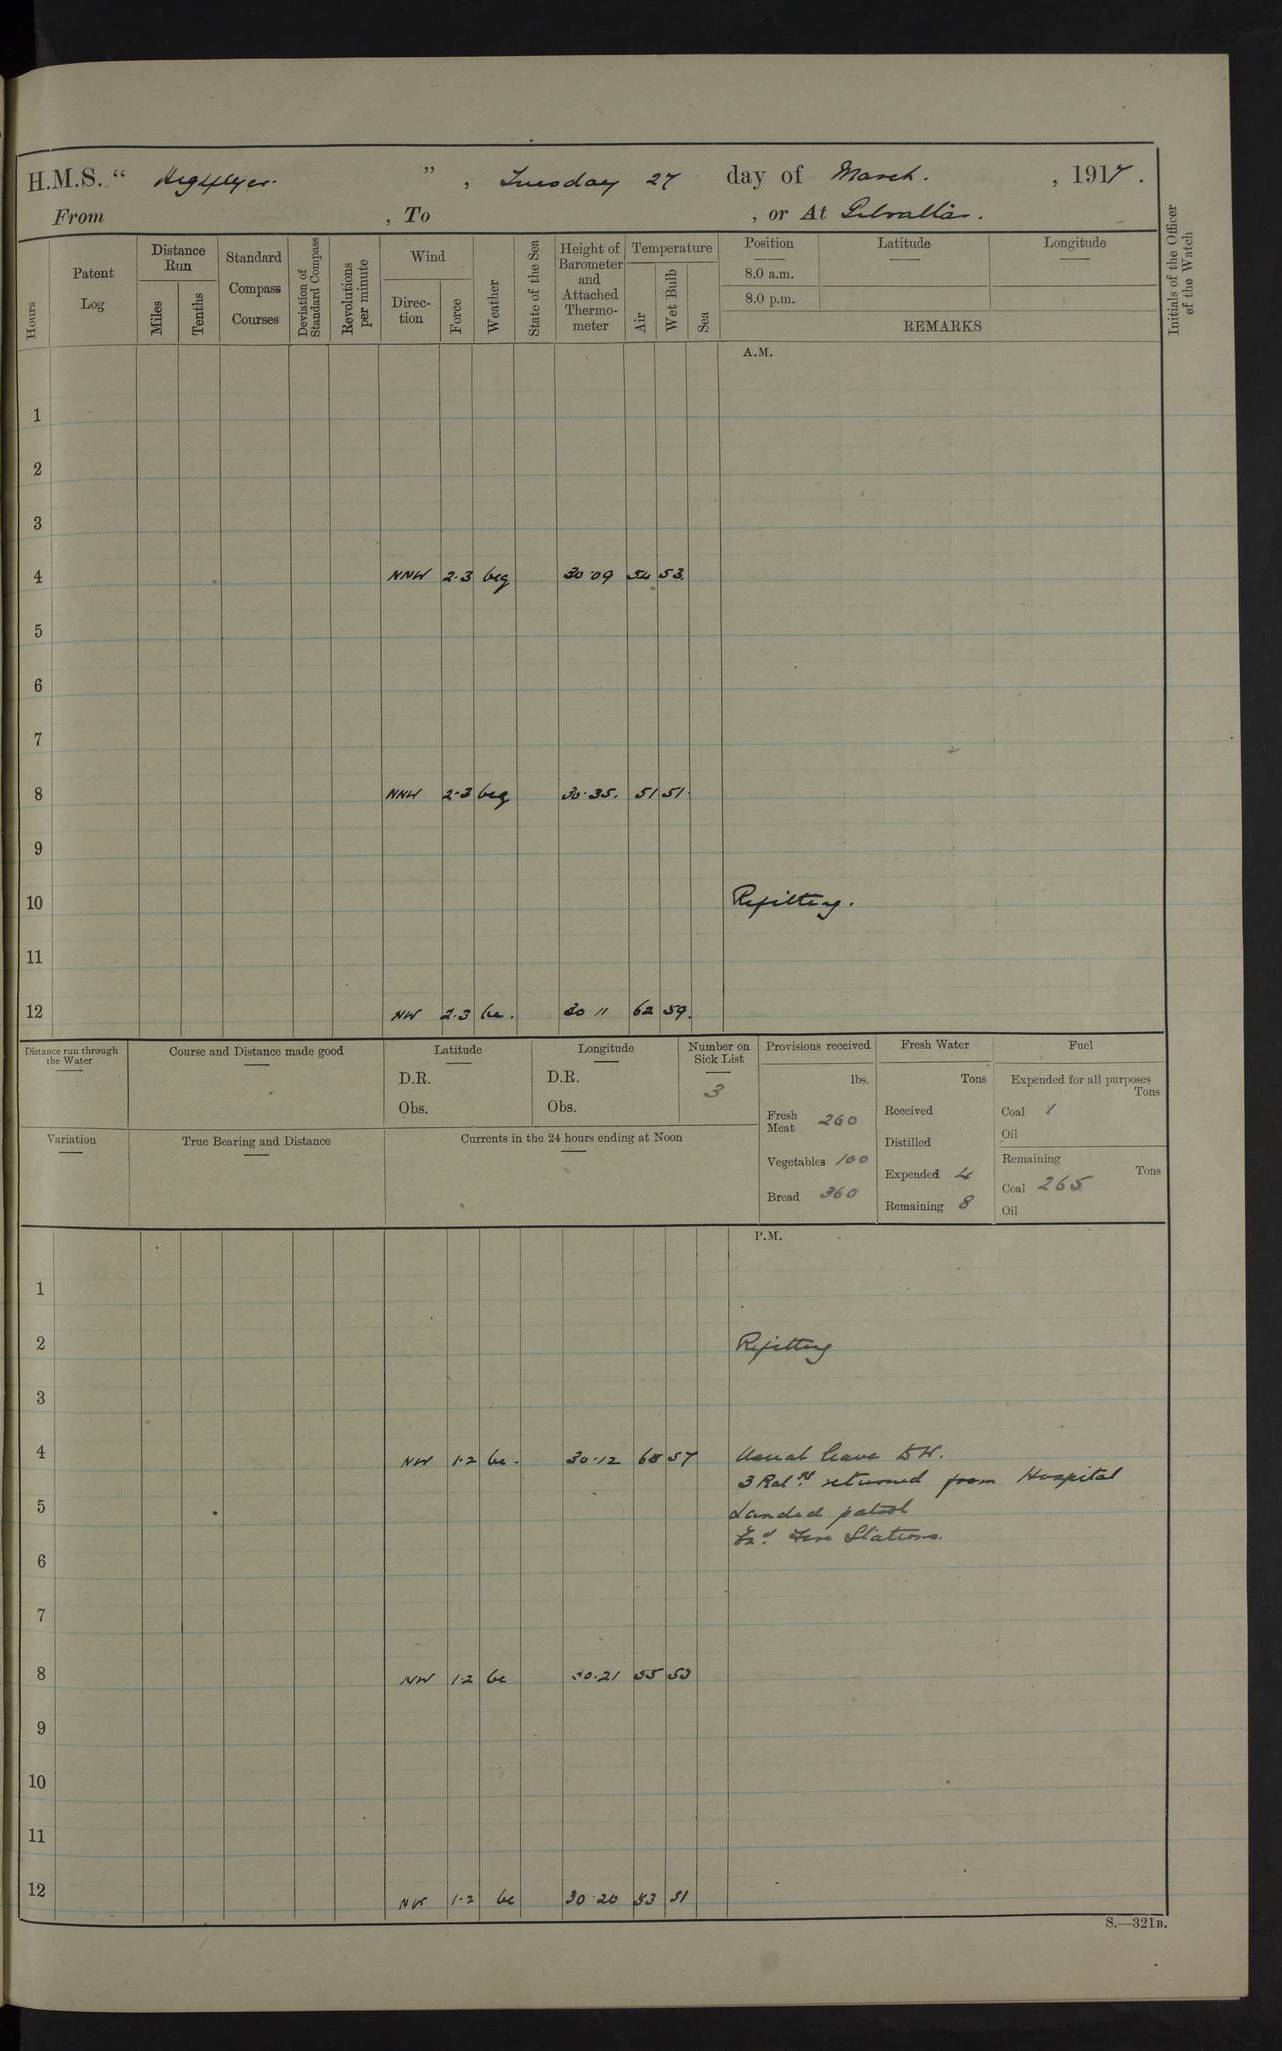 H.M.S. “ Highflyer. ” , Tuesday 27 day of March. , 1917.
From , To , or At Gibraltar.
Hours
Patent Log
Distance Run
Miles
Tenths
Standard Compass Courses
Deviation of Standard Compass
Revolutions per minute
Wind
Direc-tion
Force
Weather
State of the Sea
Height of Barometer and Attached Thermo-meter
Temperature
Air
Wet Bulb
Sea
Position
8.0 a.m.
8.0 p.m.
Latitude
Longitude
REMARKS
Initials of the Officer of the Watch
A.M.
1
2
3
4 NNW 2.3 bcg 30.09 54 53.
5
6
7
8 NNW 2.3 bcg 30.35. 51 51.
9
10 Refitting.
11
12 NW 2.3 bc. 30 11 62 59.
Distance run through the Water
Course and Distance made good
Latitude
D.R.
Obs.
Longitude
D.R.
Obs.
Number on Sick List
3
Variation
True Bearing and Distance
Currents in the 24 hours ending at Noon
Provisions received
lbs.
Fresh Meat 260
Vegetables 100
Bread 360
Fresh Water
Tons
Received
Distilled
Expended 4
Remaining 8
Fuel
Expended for all purposes
Tons
Coal 1
Oil
Remaining
Tons
Coal 265
Oil
P.M.
1
2 Refitting
3
4 NW 1.2 bc. 30.12 68 57 Usual leave to W.
3 Rat.gs returned from Hospital
5 Landed patrol
Ex.d Fire Stations.
6
7
8 NW 1.2 bc 30.21 55 53
9
10
11
12 NW 1.2 bc 30.20 53 51
S.—321B.